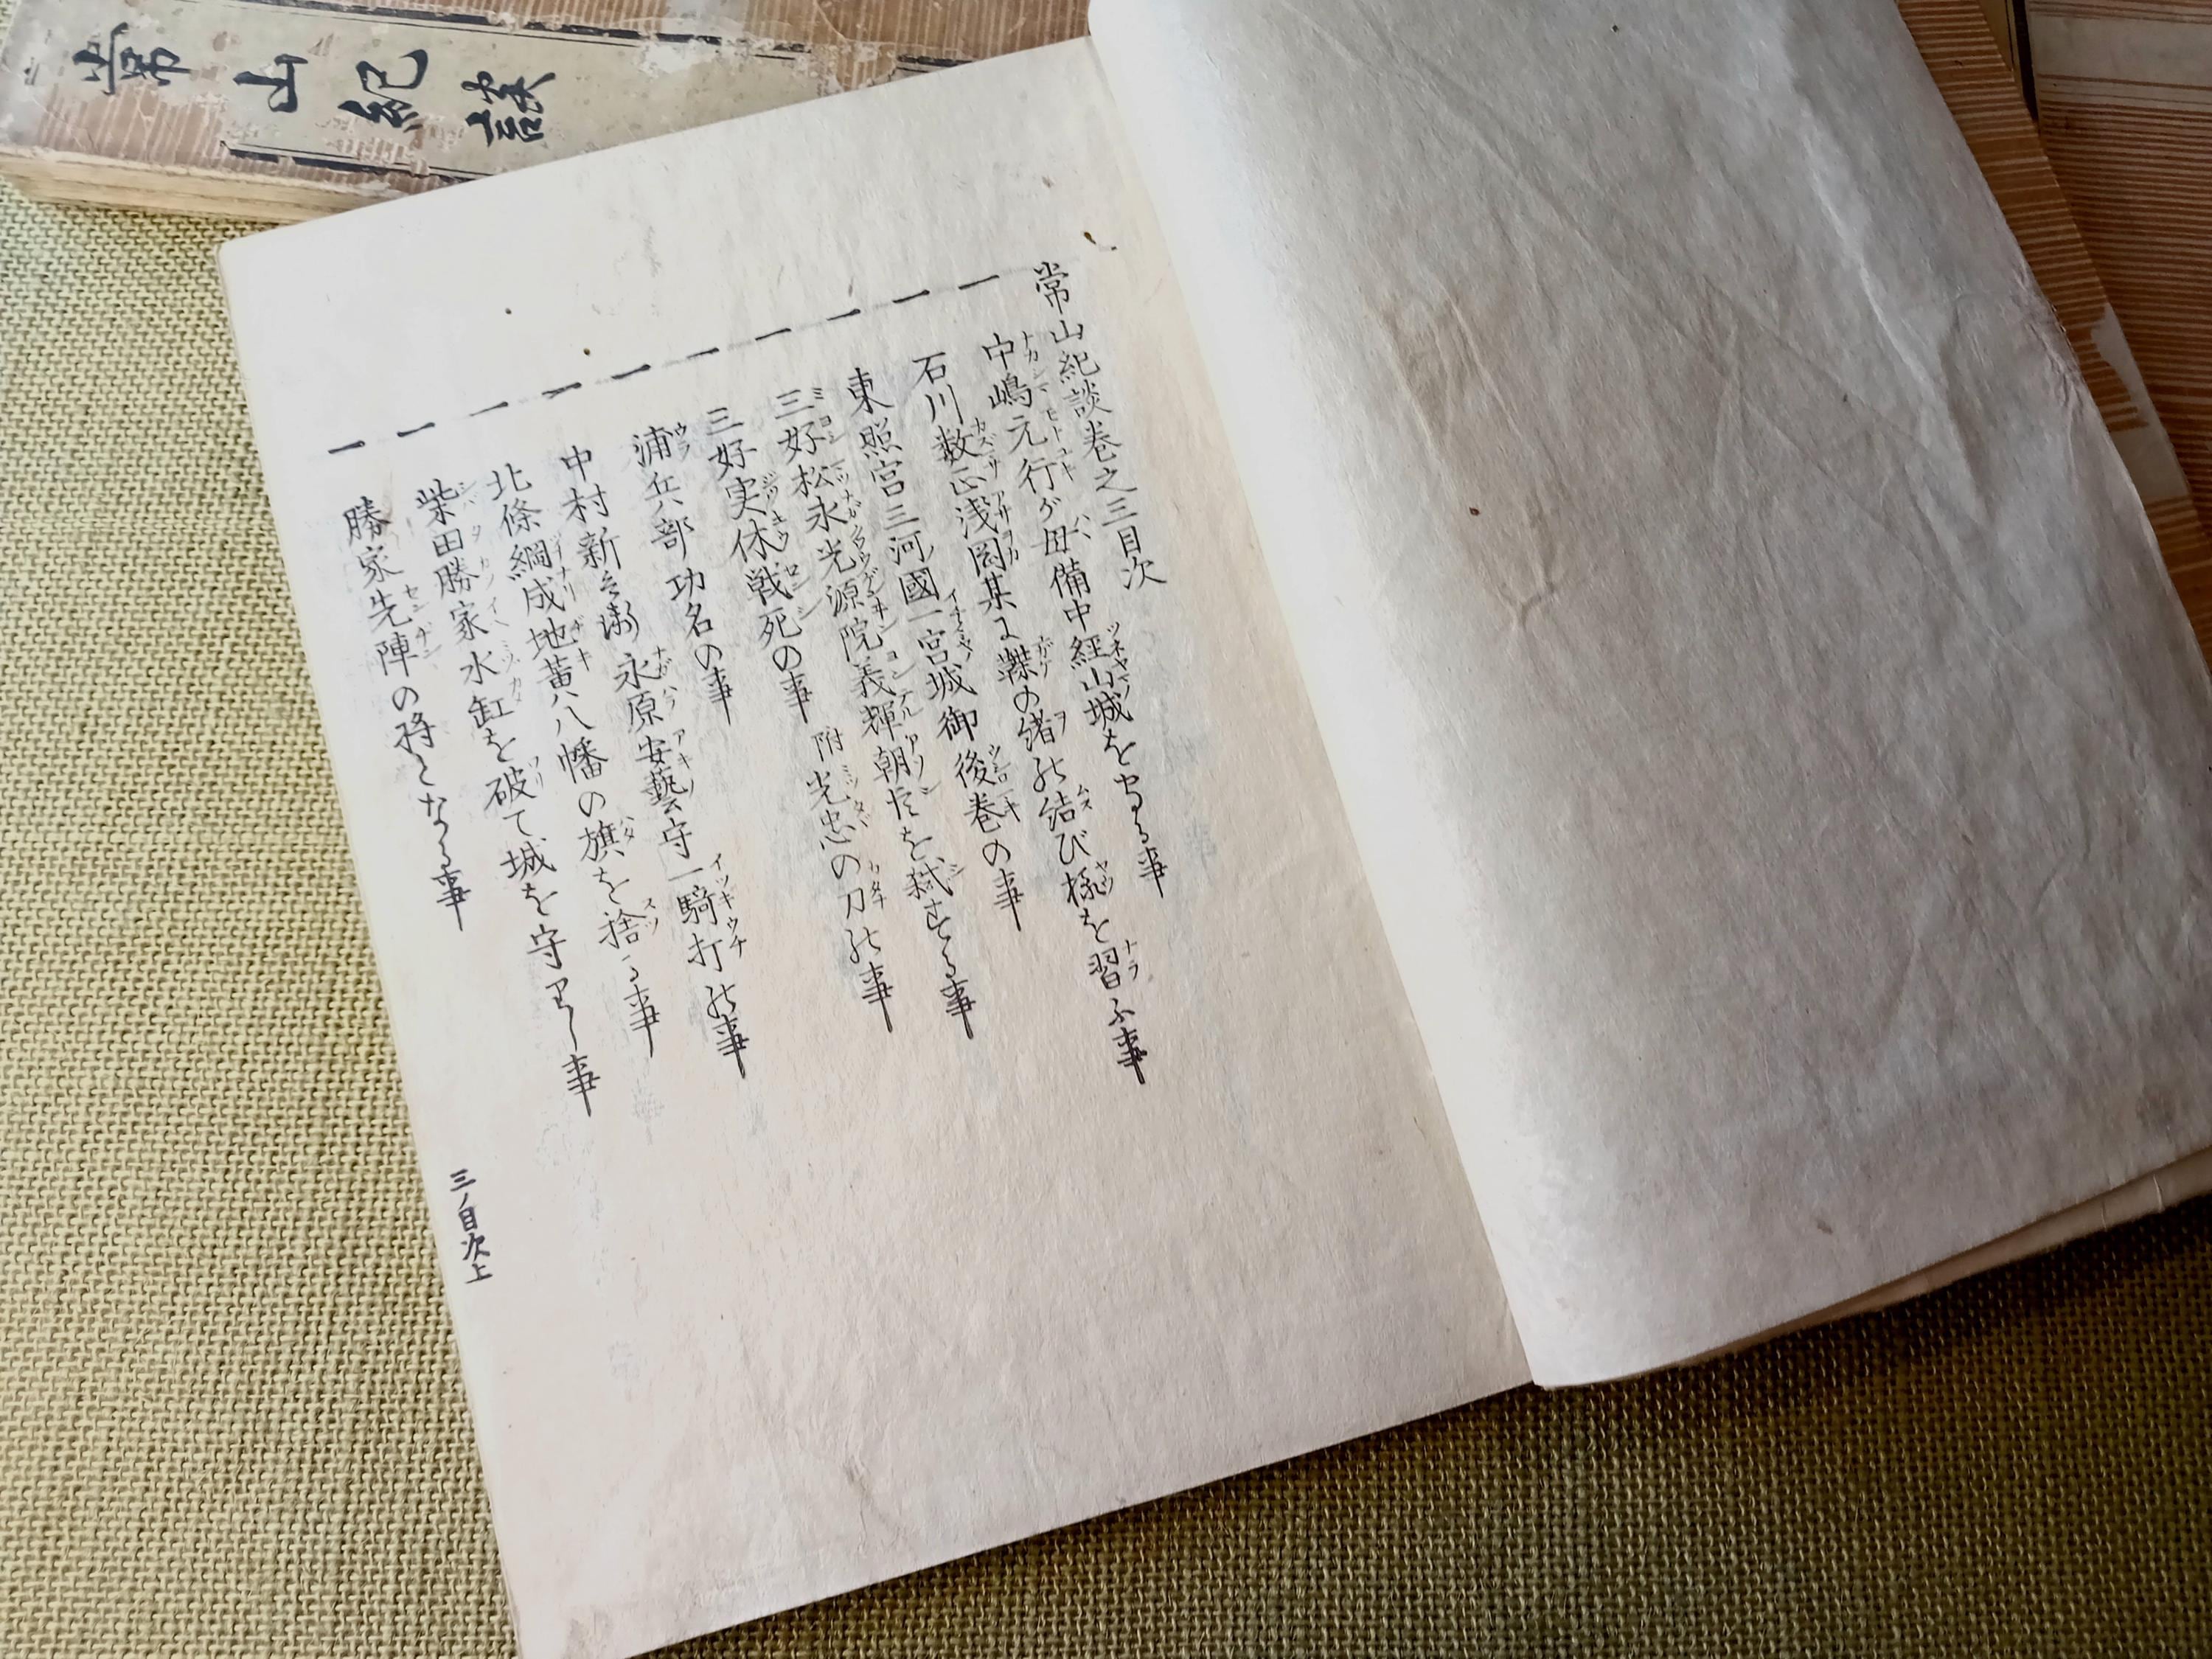 常山紀談
常山紀談巻之三目次
一 中嶋元行が母備中経山城を守る事
一 石川数正浅岡某に鞢の緒の結び様を習ふ事
一 東照宮三河國一宮城御後巻の事
一 三好松永光源院義輝朝臣を弑する事
一 三好実休戦死の事 附光忠の刀の事
一 浦兵部功名の事
一 中村新兵衛永原安藝守一騎打の事
一 北條綱成地黄八幡の旗を捨る事
一 柴田勝家水缸を破て城を守りし事
一 勝家先陣の将となる事
三ノ目次上